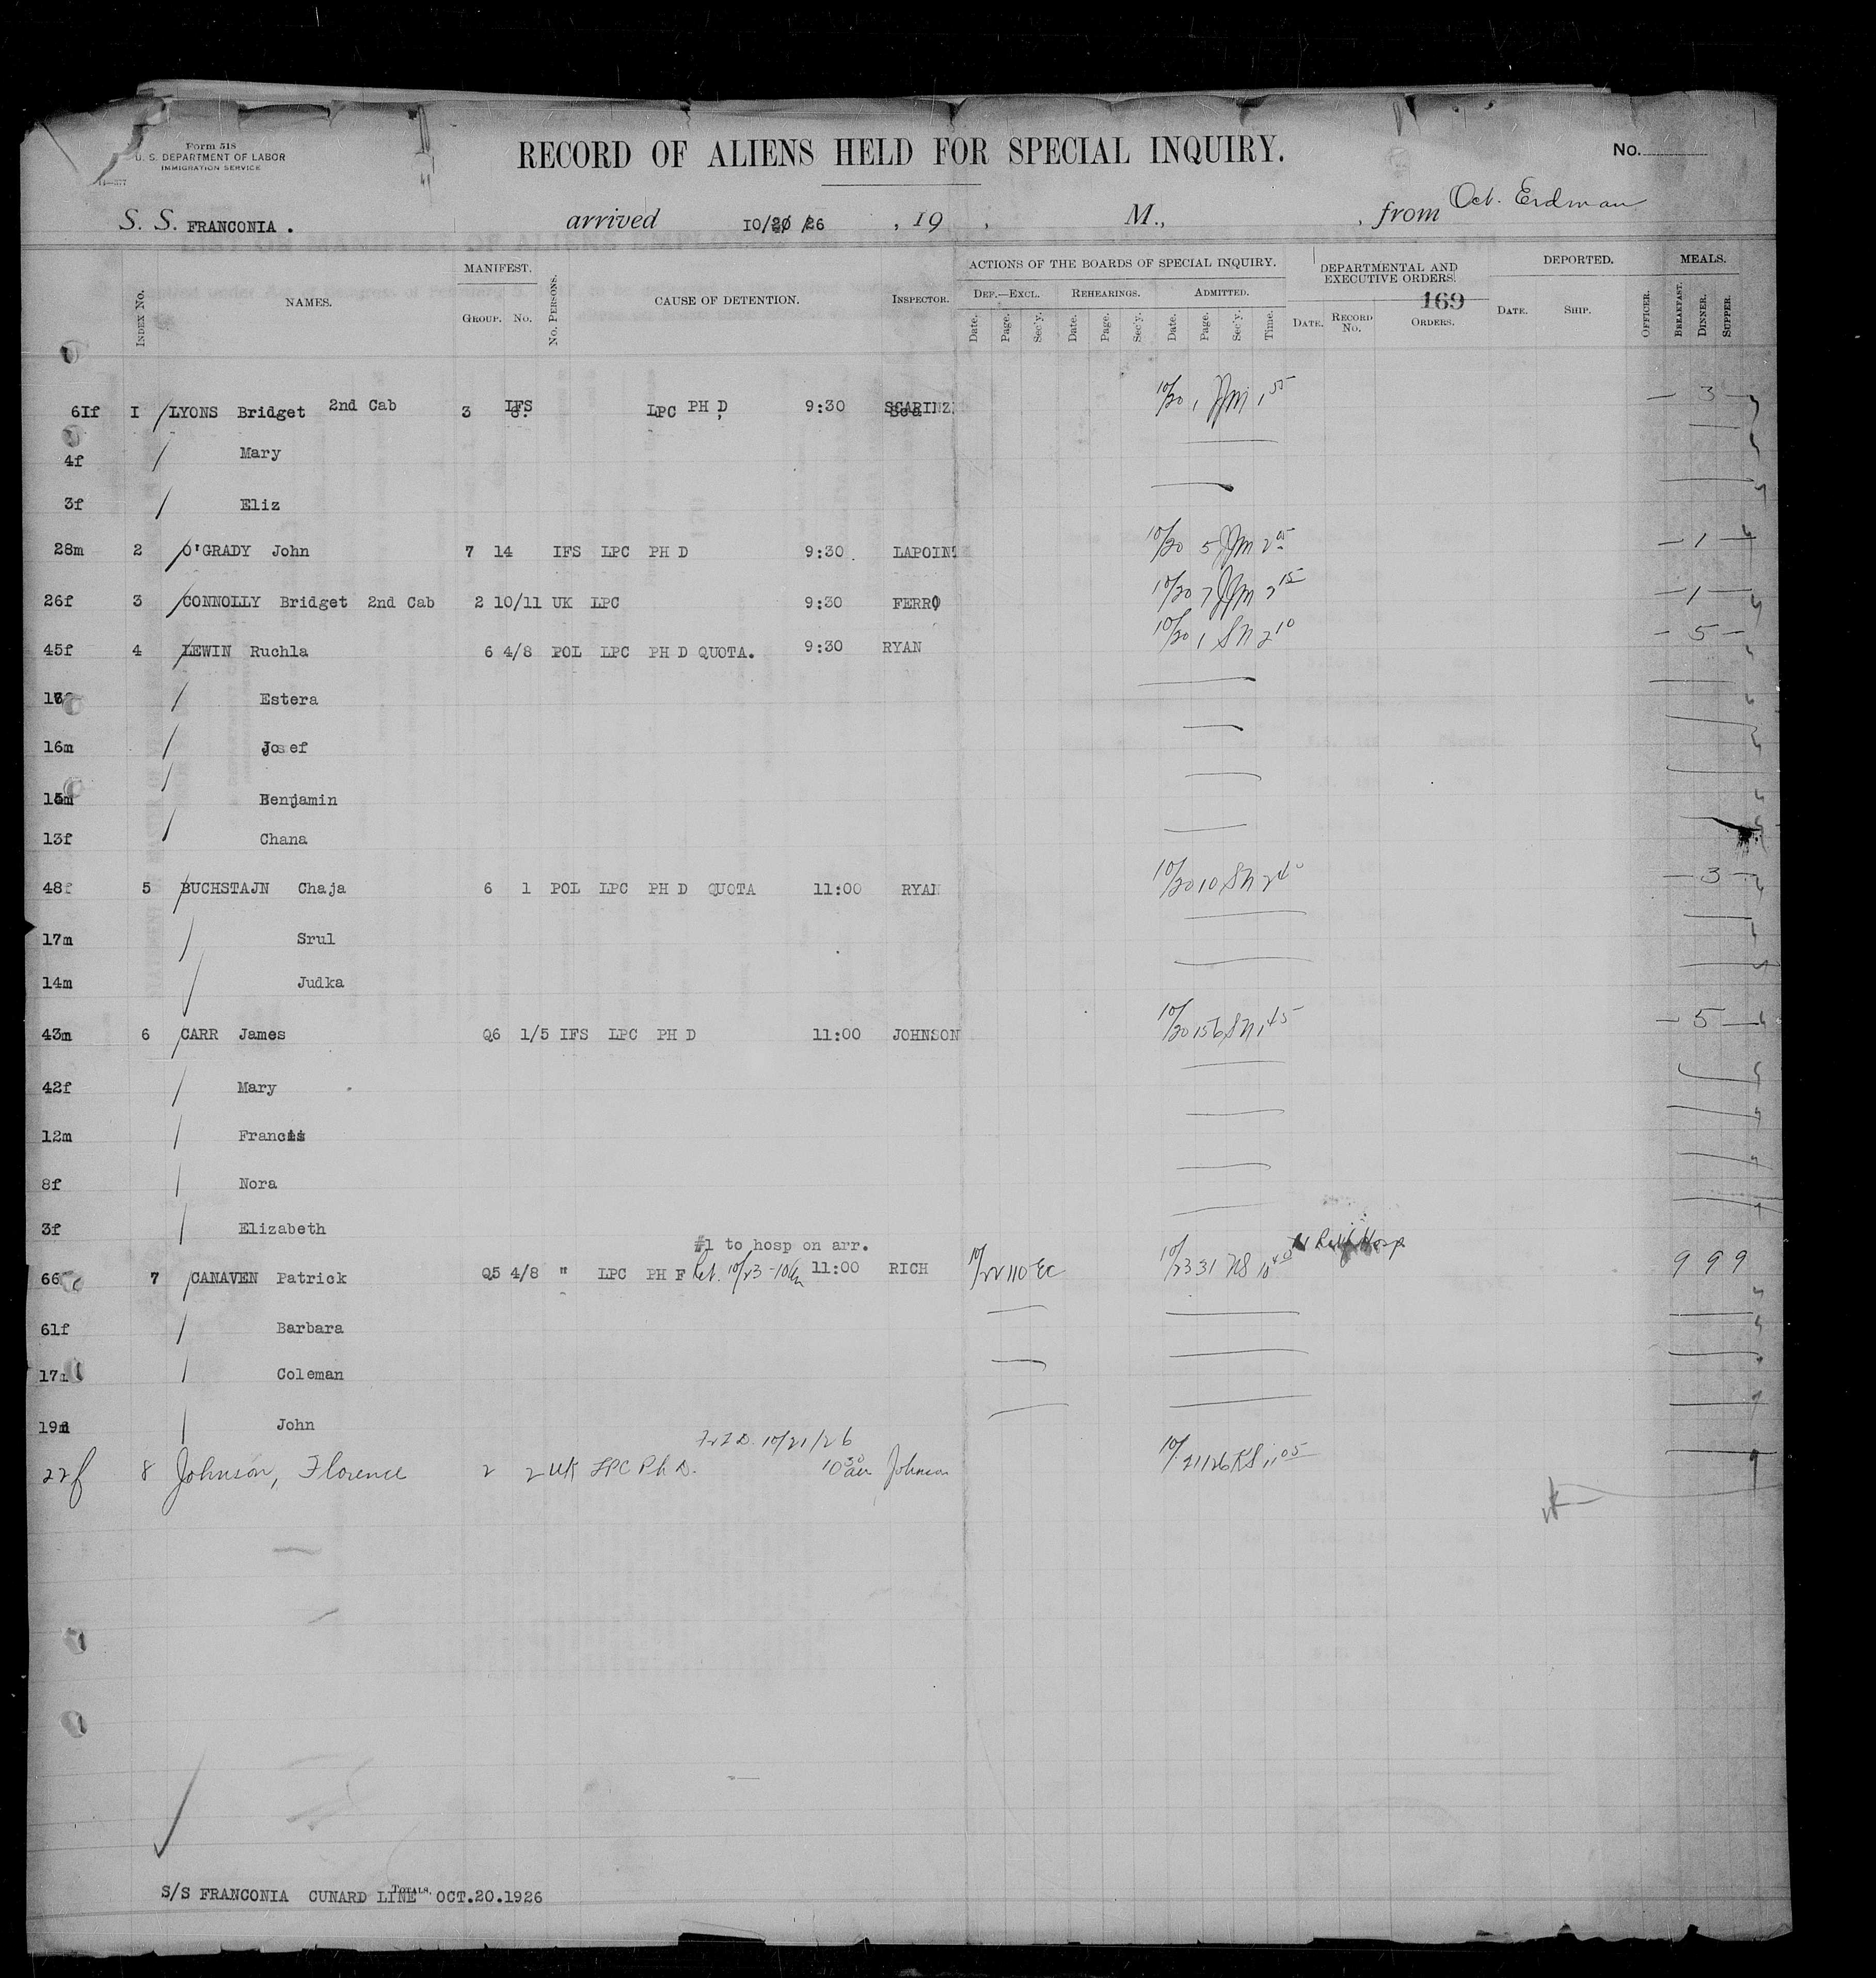 Form 518
U. S. DEPARTMENT OF LABOR
IMMIGRATION SERVICE
RECORD OF ALIENS HELD FOR SPECIAL INQUIRY.
No.
S. S. FRANCONIA . arrived 10/20 /26 , 19 , M., , from Oct. Erdman
INDEX No. NAMES. MANIFEST. GROUP. No. No. PERSONS. CAUSE OF DETENTION. INSPECTOR. ACTIONS OF THE BOARDS OF SPECIAL INQUIRY. DEPARTMENTAL AND EXECUTIVE ORDERS. DEPORTED. MEALS.
DEF.—EXCL. REHEARINGS. ADMITTED. 169
Date. Page. Sec'y. Date. Page. Sec'y. Date. Page. Sec'y. Time. DATE. RECORD No. ORDERS. DATE. SHIP. OFFICER. BREAKFAST. DINNER. SUPPER.
6If I LYONS Bridget 2nd Cab 3 IFS LPC PH D 9:30 10/20 1 JJM 1 55 — 3 —
4f Mary
3f Eliz
28m 2 O'GRADY John 7 14 IFS LPC PH D 9:30 LAPOINT 10/20 5 JJM 2 05 — 1 —
26f 3 CONNOLLY Bridget 2nd Cab 2 10/11 UK LPC 9:30 FERRO 10/20 7 JJM 2 15 — 1 —
45f 4 LEWIN Ruchla 6 4/8 POL LPC PH D QUOTA. 9:30 RYAN 10/20 1 SN 2 10 — 5 —
Estera
16m Josef
Benjamin
13f Chana
48f 5 BUCHSTAJN Chaja 6 1 POL LPC PH D QUOTA 11:00 RYAN 10/20 10 SN 2 40 — 3 —
17m Srul
14m Judka
43m 6 CARR James Q6 1/5 IFS LPC PH D 11:00 JOHNSON 10/20 156 SN 1 45 — 5 —
42f Mary
12m Francis
8f Nora
3f Elizabeth
#1 to hosp on arr.
66 7 CANAVEN Patrick Q5 4/8 " LPC PH F Ret. 10/23 11:00 RICH 10/22 110 EC 10/23 31 Hosp 9 9 9
61f Barbara
17 Coleman
19m John
10/21/26
22f 8 Johnson, Florence 2 2 UK LPC Ph D. 10 30 am Johnson 10/21 126 KS 11 05
S/S FRANCONIA CUNARD LINE TOTALS. OCT.20.1926